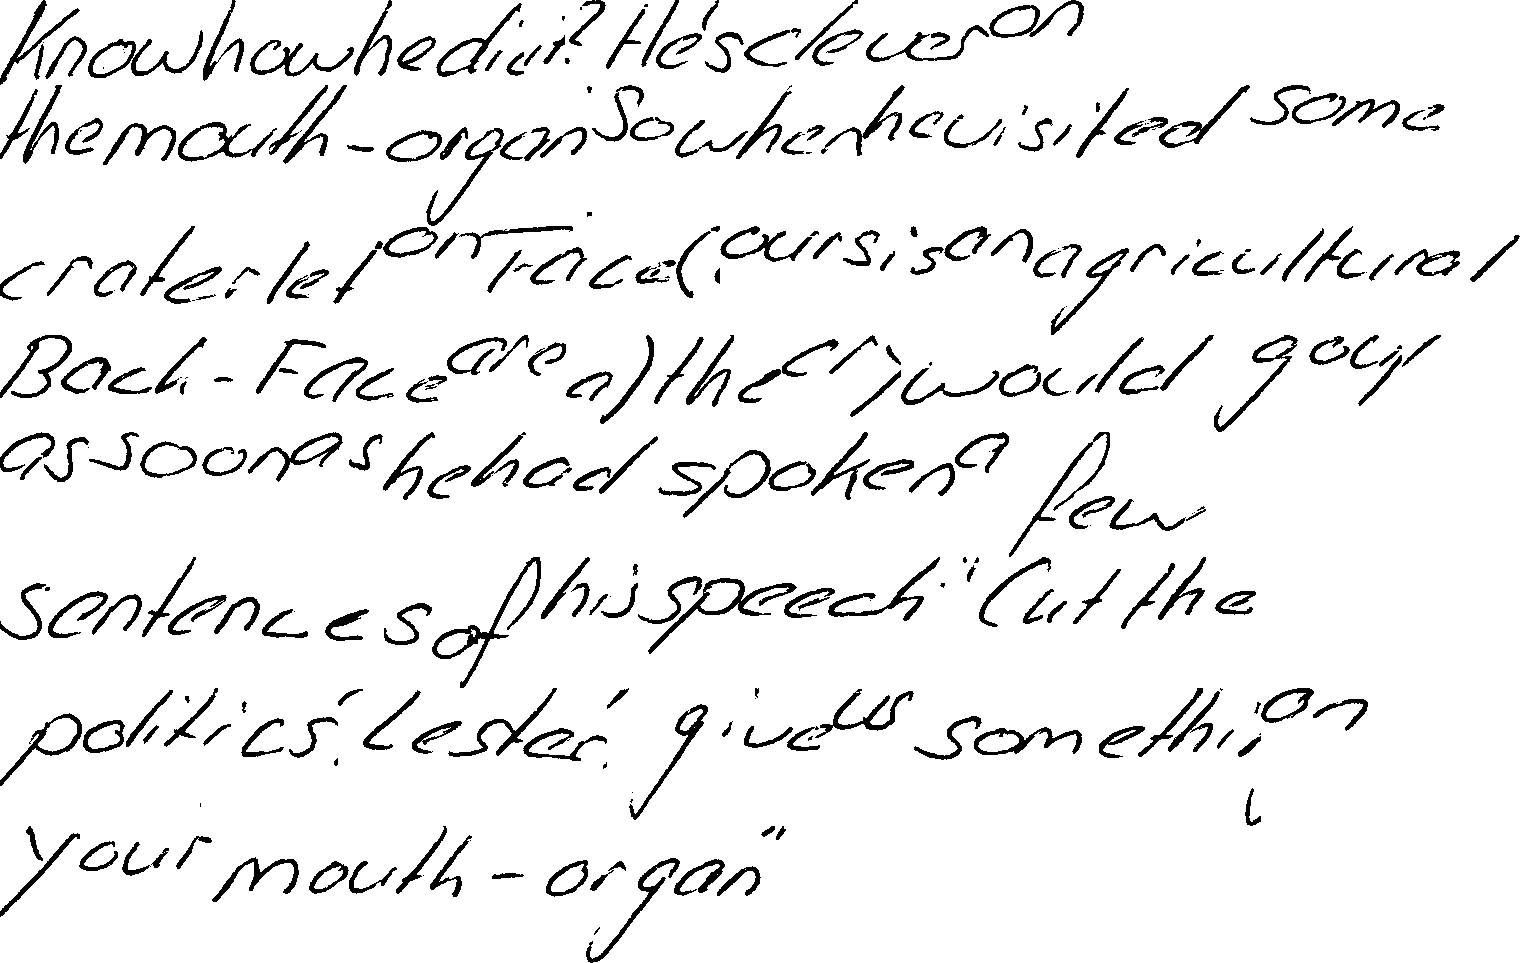 Know how he did it? He's clever on
the mouth-organ so when he visited some
craterlet on Face (ours is an agricultural
Back-Face area) the cry would go up
as soon as he had spoken a few
sentences of his speech "Cut the
politics, Lester, give us something on
your mouth-organ"